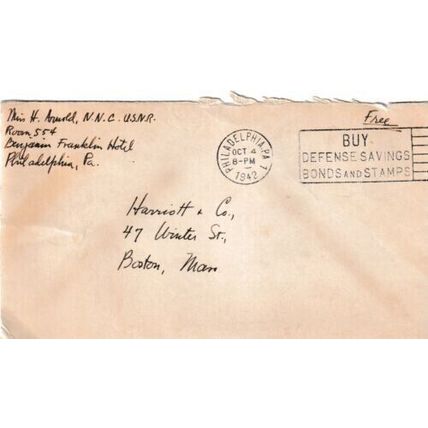 Miss H. Arnold, N.N.C. U.S.N.R.
Room 554
Benjamin Franklin Hotel
Philadelphia, Pa.
Free
PHILADELPHIA, PA. 1
OCT 4
8-PM
1942
BUY
DEFENSE SAVINGS
BONDS AND STAMPS
Harriott & Co.,
47 Winter St.,
Boston, Mass